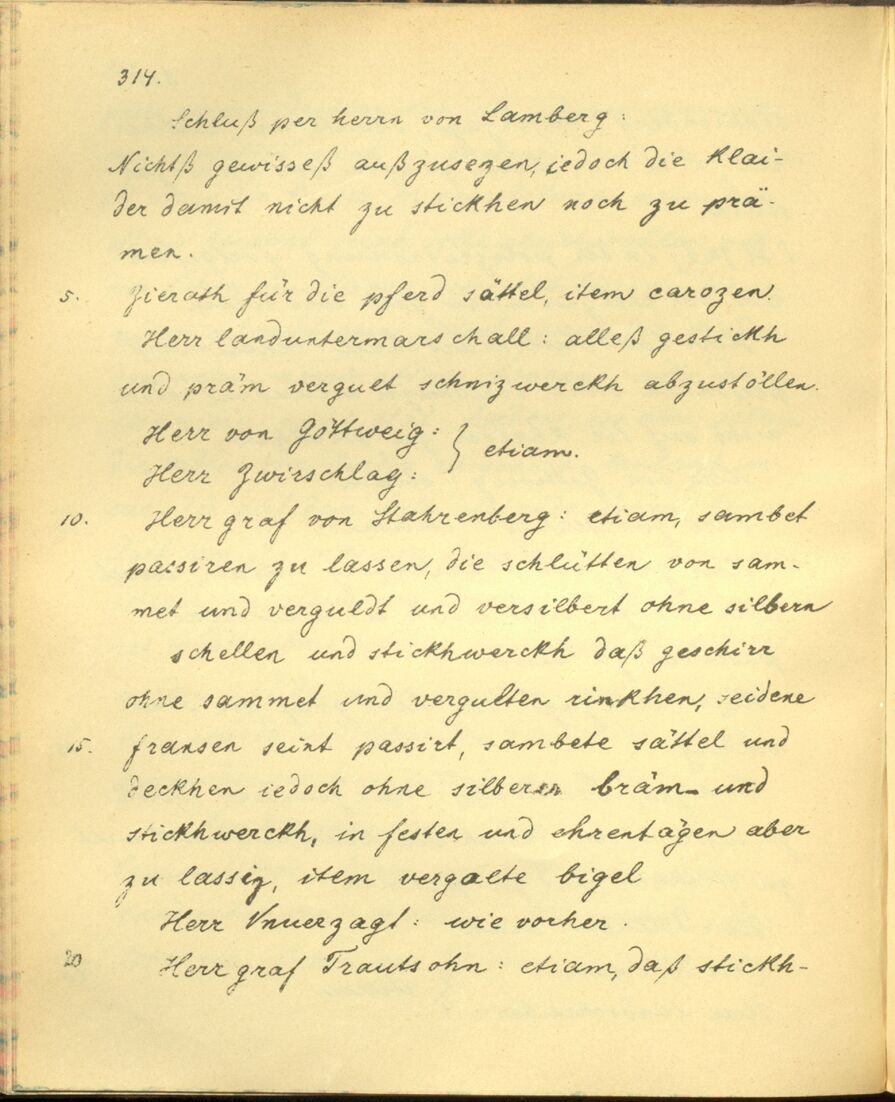 314.
Schluß per herrn von Lamberg:
Nichtß gewisseß außzusezen, iedoch die klai-
der damit nicht zu stickhen noch zu prä-
men.
5. Zierath für die pferd sättel, item carozen.
Herr landuntermarschall: alleß gestickh
und präm vergult schnizwerckh abzustöllen.
Herr von Göttweig: } etiam.
Herr Zwirschlag:
10. Herr graf von Stahrenberg: etiam, sambet
passiren zu lassen, die schlütten von sam-
met und verguldt und versilbert ohne silbern
schellen und stickhwerckh daß geschirr
ohne sammet und vergulten rinkhen, seidene
15. fransen seint passirt, sambete sättel und
deckhen iedoch ohne silberen bräm- und
stickhwerckh, in festen und ehrentägen aber
zu lassig, item vergulte bigel
Herr Vnuerzagt: wie vorher.
20 Herr graf Trautsohn: etiam, daß stickh-